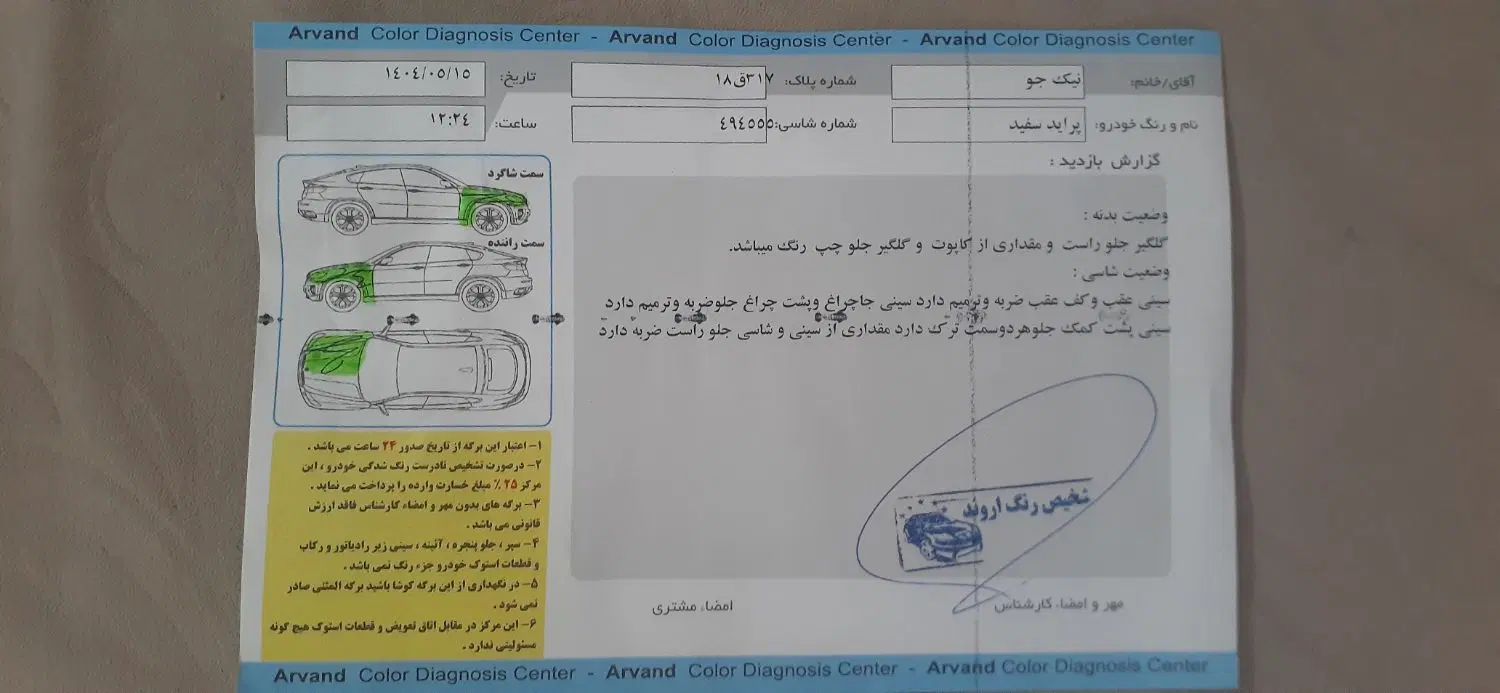 Arvand Color Diagnosis Center - Arvand Color Diagnosis Center - Arvand Color Diagnosis Center
آقای/خانم: نیک جو
شماره پلاک: ۳۱۷ق۱۸
تاریخ: ۱۴۰۴/۰۵/۱۵
نام و رنگ خودرو: پراید سفید
شماره شاسی: ٤٩٤٥٥٥
ساعت: ۱۲:۲٤
گزارش بازدید :
وضعیت بدنه :
گلگیر جلو راست و مقداری از کاپوت و گلگیر جلو چپ رنگ میباشد.
وضعیت شاسی :
سینی عقب وکف عقب ضربه وترمیم دارد سینی جاچراغ وپشت چراغ جلوضربه وترمیم دارد
سینی پشت کمک جلوهردوسمت ترک دارد مقداری از سینی و شاسی جلو راست ضربه دارد
تشخیص رنگ اروند
مهر و امضاء کارشناس
امضاء مشتری
سمت شاگرد
سمت راننده
۱- اعتبار این برگه از تاریخ صدور ۲۴ ساعت می باشد .
۲- درصورت تشخیص نادرست رنگ شدگی خودرو ، این
مرکز ۲۵ ٪ مبلغ خسارت وارده را پرداخت می نماید .
۳- برگه های بدون مهر و امضاء کارشناس فاقد ارزش
قانونی می باشد .
۴- سپر ، جلو پنجره ، آئینه ، سینی زیر رادیاتور و رکاب
و قطعات استوک خودرو جزء رنگ نمی باشد .
۵- در نگهداری از این برگه کوشا باشید برگه المثنی صادر
نمی شود .
۶- این مرکز در مقابل اتاق تعویض و قطعات استوک هیچ گونه
مسئولیتی ندارد .
Arvand Color Diagnosis Center - Arvand Color Diagnosis Center - Arvand Color Diagnosis Center